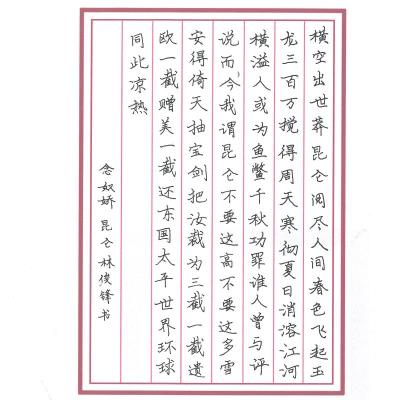 横空出世莽昆仑阅尽人间春色飞起玉
龙三百万搅得周天寒彻夏日消溶江河
横溢人或为鱼鳖千秋功罪谁人曾与评
说而今我谓昆仑不要这高不要这多雪
安得倚天抽宝剑把汝裁为三截一截遗
欧一截赠美一截还东国太平世界环球
同此凉热
念奴娇 昆仑 林俊锋书